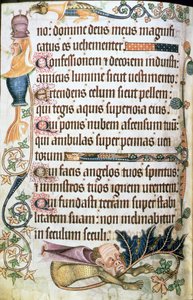 no: domine deus meus magnifi
catus es vehementer
Confessionem et decorem induisti:
amictus lumine sicut vestimento
Extendens celum sicut pellem:
qui tegis aquis superiora eius
Qui ponis nubem ascensum tuum:
qui ambulas super pennas ven
torum
Qui facis angelos tuos spiritus:
et ministros tuos ignem urentem
Qui fundasti terram super stabi
litatem suam: non inclinabitur
in seculum seculi